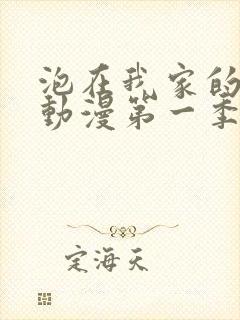 泡在我家的
動漫第一季
定海天